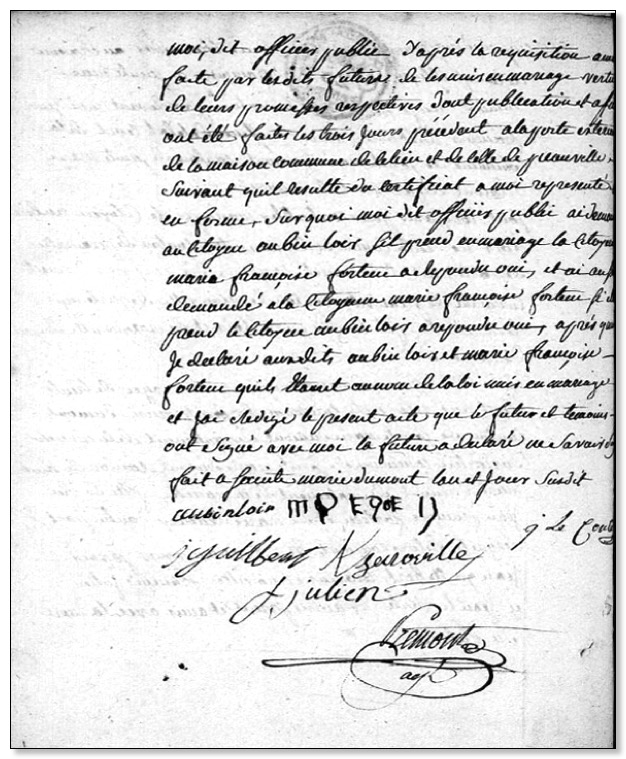 moi, dit officier public d'après la requisition a
faite par lesdits futurs de les unir en mariage vertu
de leurs promesses respectives dont publication et a
ont été faites les trois Jours précédent a la porte exterie
de la maison commune de ce lieu et de celle de
Suivant quil resulte du certificat a moi representé
en forme, Surquoi moi dit officiis public ai deman
au Citoyen aubin lois Sil prend en mariage la Citoye
marie françoise fortem a repondu oui, et ai au
demandé a la Citoyenne marie françoise fortem, Si
prend le Citoyen aubin lois a repondu oui, après que
Je declaré auxdits aubin lois et marie françoise
fortem quils Etaient au nom de la loi unis en mariage
et J'ai Redigé le present acte que le futur et temoins
ont Signé avec moi la future a declaré ne Savoir
fait a Sainte marie dumont lan et Jour Susdit
aubin lois
j guilbert
J julien